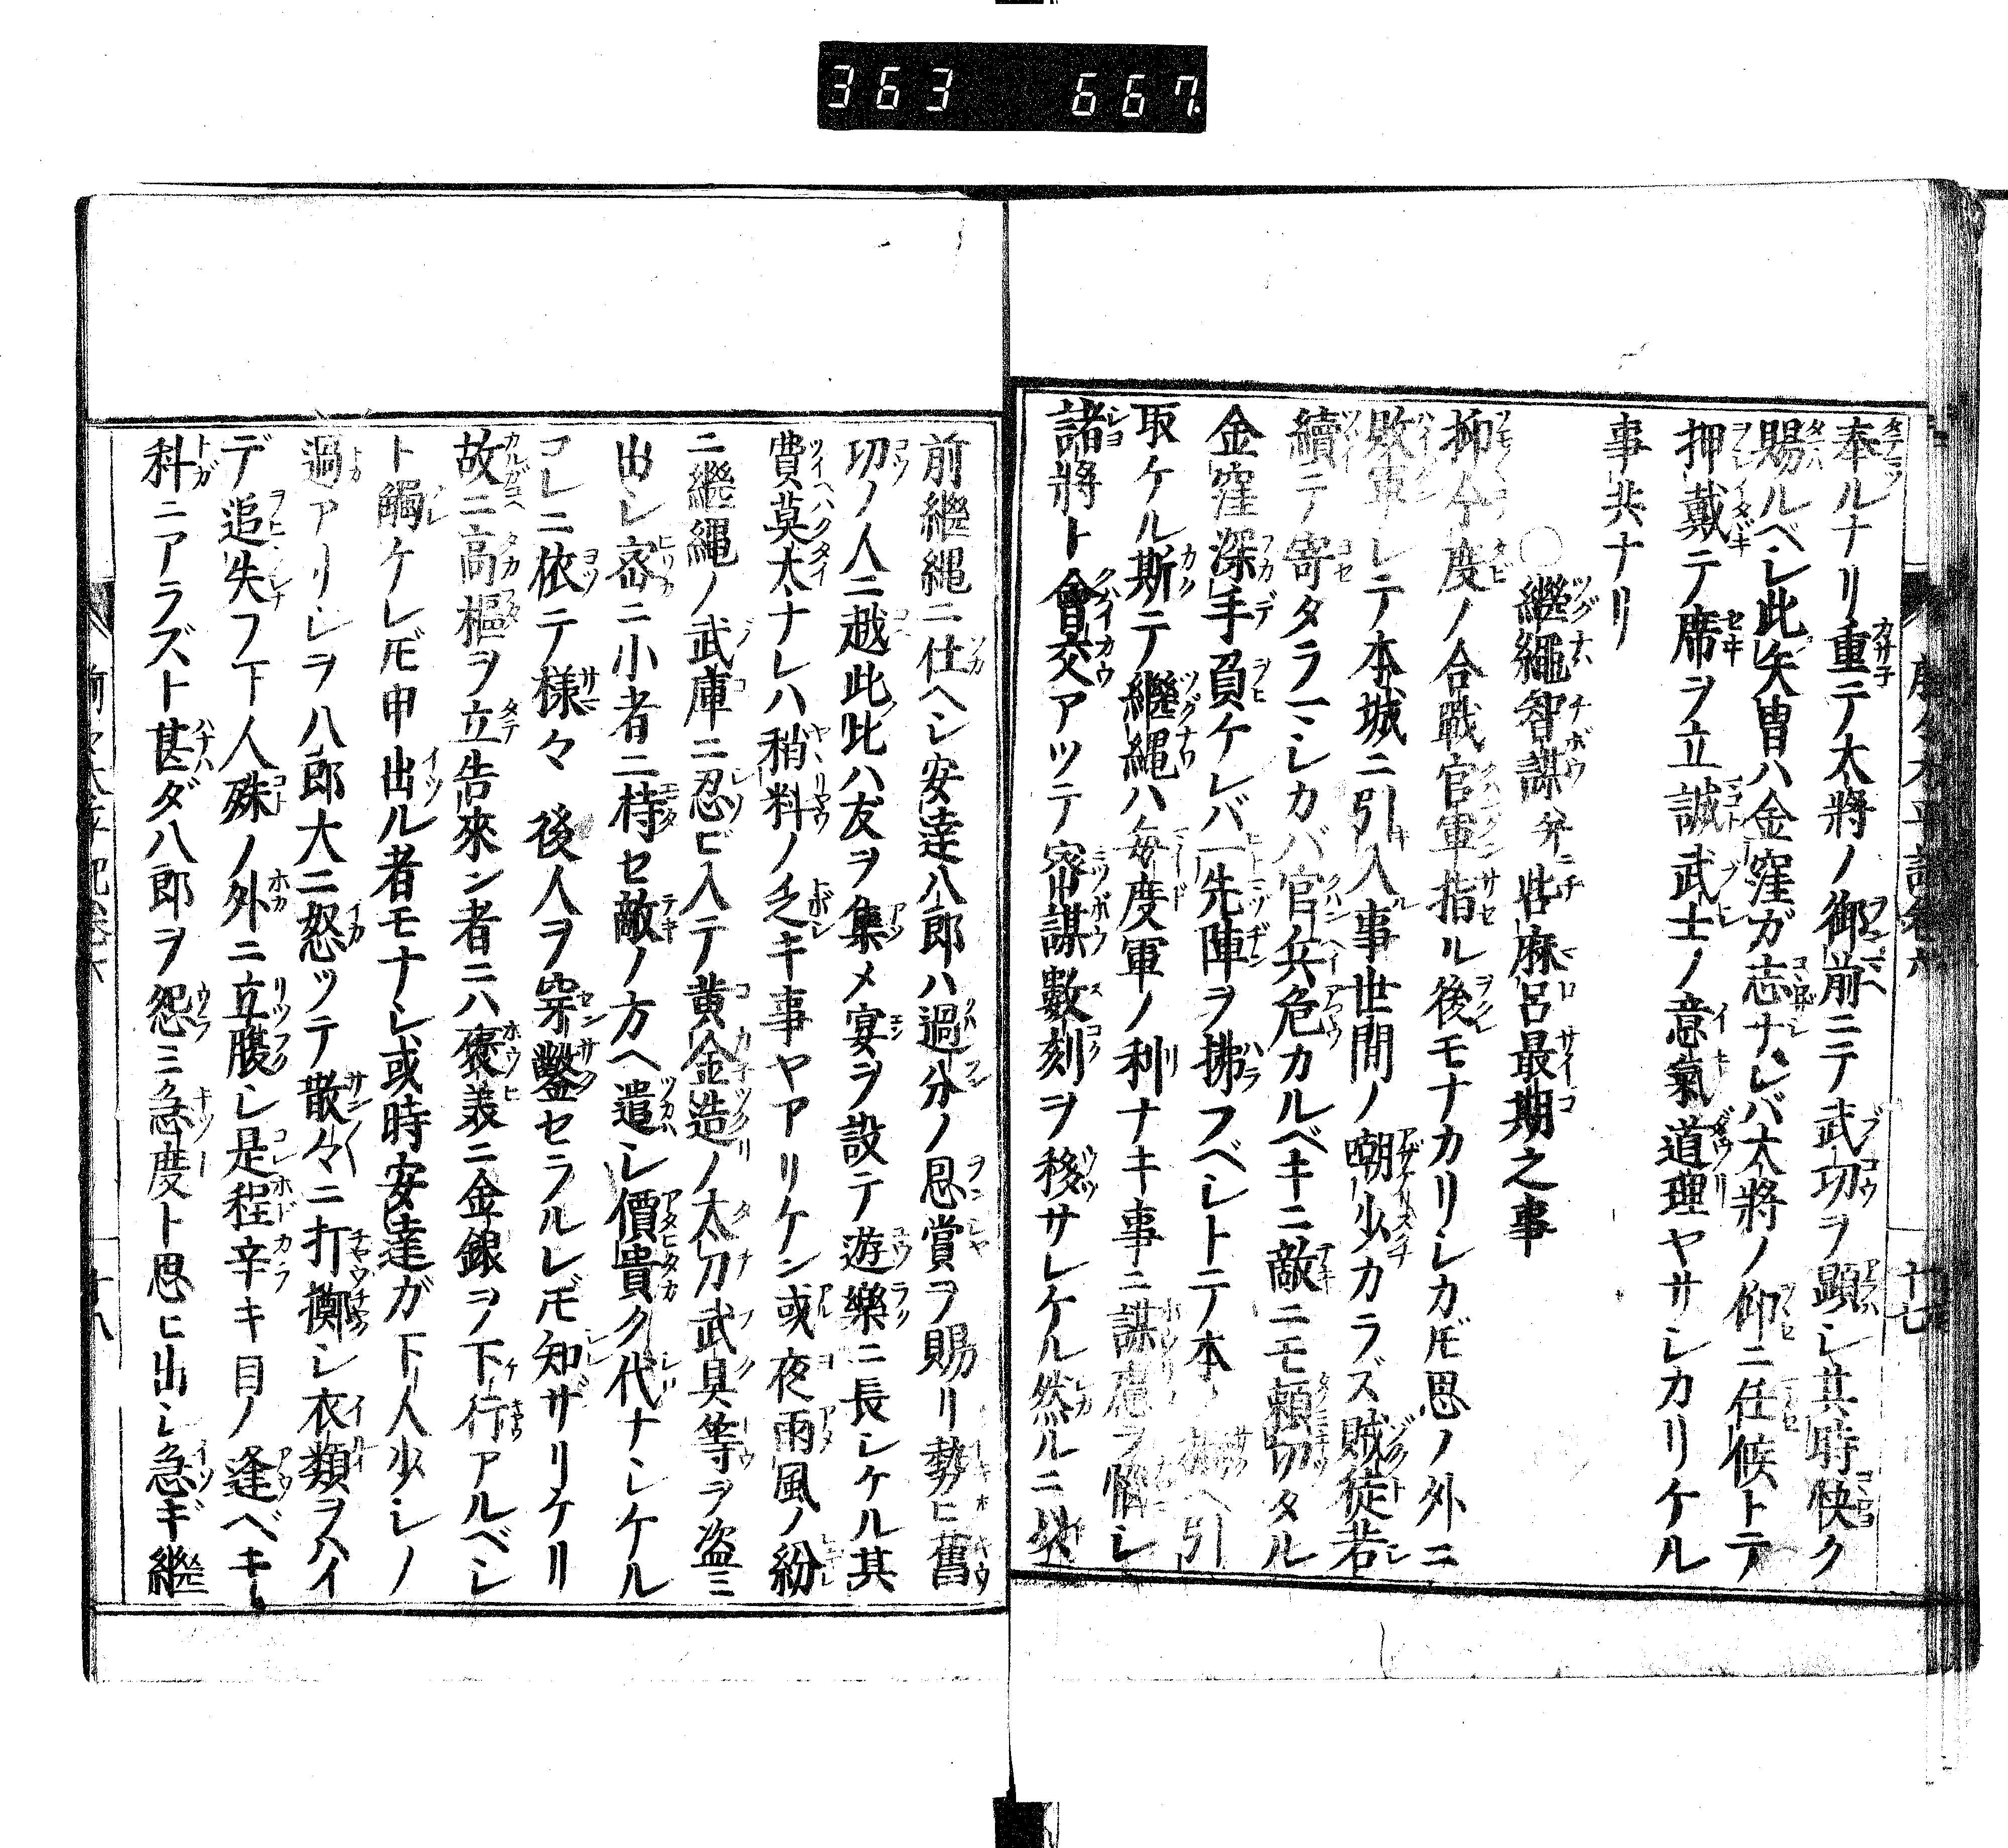 363 667
奉ルナリ重テ大將ノ御前ニテ武功ヲ顕シ其時快ク
賜ルベシ此矢曽ハ金窪ガ志ナレバ大將ノ仰ニ任候トテ
押戴テ席ヲ立誠武士ノ意氣道理ヤサシカリケル
事共ナリ
○繼繩智謀并岩麻呂最期之事
抑今度ノ合戰官軍指ル後モナカリシカ𪜈思ノ外ニ
敗軍シテ本城ニ引入事世間ノ嘲少カラズ賊徒若
續テ寄タラマシカバ官兵危カルベキニ敵ニモ頼切タル
金窪深手負ケレバ一先陣ヲ拂フベシトテ本ノ へ引
取ケル斯テ繼繩ハ毎度軍ノ利ナキ事ニ謀慮ヲ惱シ
諸將ト會交アツテ密謀數刻ヲ移サレケル然ルニ
十七
前繼繩ニ仕ヘシ安達八郎ハ過分ノ恩賞ヲ賜リ勢ヒ舊
功ノ人ニ越此比ハ友ヲ集メ宴ヲ設テ遊樂ニ長シケル其
費莫太ナレハ稍料ノ乏キ事ヤアリケン或夜雨風ノ紛
ニ繼繩ノ武庫ニ忍ビ入テ黄金造ノ太刀武具等ヲ盗ミ
出シ密ニ小者ニ持セ敵ノ方ヘ遣シ價貴ク代ナシケル
コレニ依テ様々後人ヲ穿鑿セラルレ𪜈知ザリケリ
故ニ高樞ヲ立告來ン者ニハ褒美ニ金銀ヲ下行アルベシ
ト觸ケレ𪜈申出ル者モナシ或時安達ガ下人少シノ
過アリシヲ八郎大ニ怒ツテ散々ニ打擲シ衣類ヲハイ
デ追失フ下人殊ノ外ニ立腹シ是程辛キ目ノ逢ベキ
科ニアラズト甚ダ八郎ヲ怨ミ急度ト思ヒ出シ急ギ繼
十八